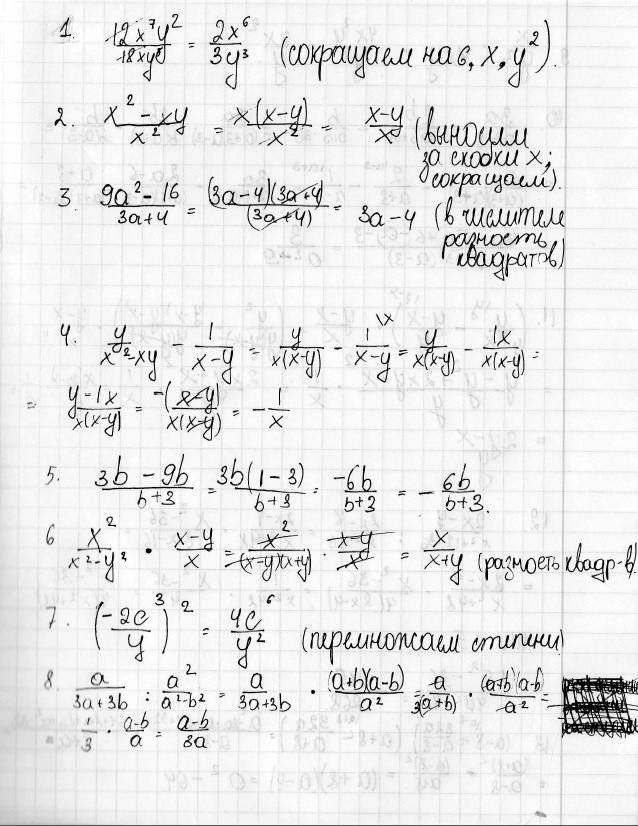 1. 12x⁷y²/18xy⁵ = 2x⁶/3y³ (сокращаем на 6, x, y²).
2. x² - xy/x² = x(x-y)/x² = x-y/x (выносим
за скобки x;
сокращаем).
3. 9a² - 16/3a+4 = (3a-4)(3a+4)/(3a+4) = 3a-4 (в числителе
разность
квадратов)
4. y/x²-xy - 1/x-y = y/x(x-y) - 1\x/x-y = y/x(x-y) - 1x/x(x-y) =
= y-1x/x(x-y) = -(x-y)/x(x-y) = -1/x
5. 3b - 9b/b+3 = 3b(1-3)/b+3 = -6b/b+3 = -6b/b+3.
6 x²/x²-y² · x-y/x = x²/(x-y)(x+y) · x-y/x = x/x+y (разность квадр-в)
7. (-2c³/y)² = 4c⁶/y² (перемножаем степени)
8. a/3a+3b : a²/a²-b² = a/3a+3b · (a+b)(a-b)/a² = a/3(a+b) · (a+b)(a-b)/a² =
= 1/3 · a-b/a = a-b/3a